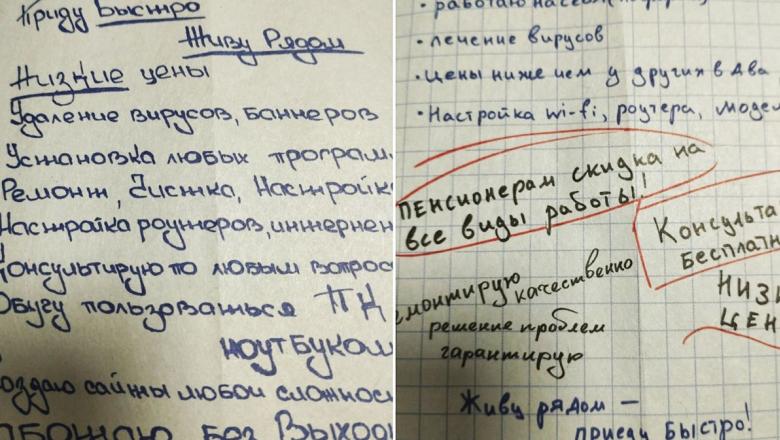 Приду Быстро
Живу Рядом
Низкие цены
Удаление вирусов, баннеров
Установка любых програм
Ремонт, Чистка, Настройк
Настройка роутеров, интернен
Консультирую по любым вопрос
Обучу пользоваться ПК
ноутбуком
создаю сайты любой сложнос
без Выход
лечение вирусов
Цены ниже чем у других в два
Настройка wi-fi, роутера, модем
Пенсионерам скидка на
все виды работы!
Консульта
бесплатн
низк
цен
монтирую качественно
решение проблем
гарантирую
Живу рядом –
приеду быстро!